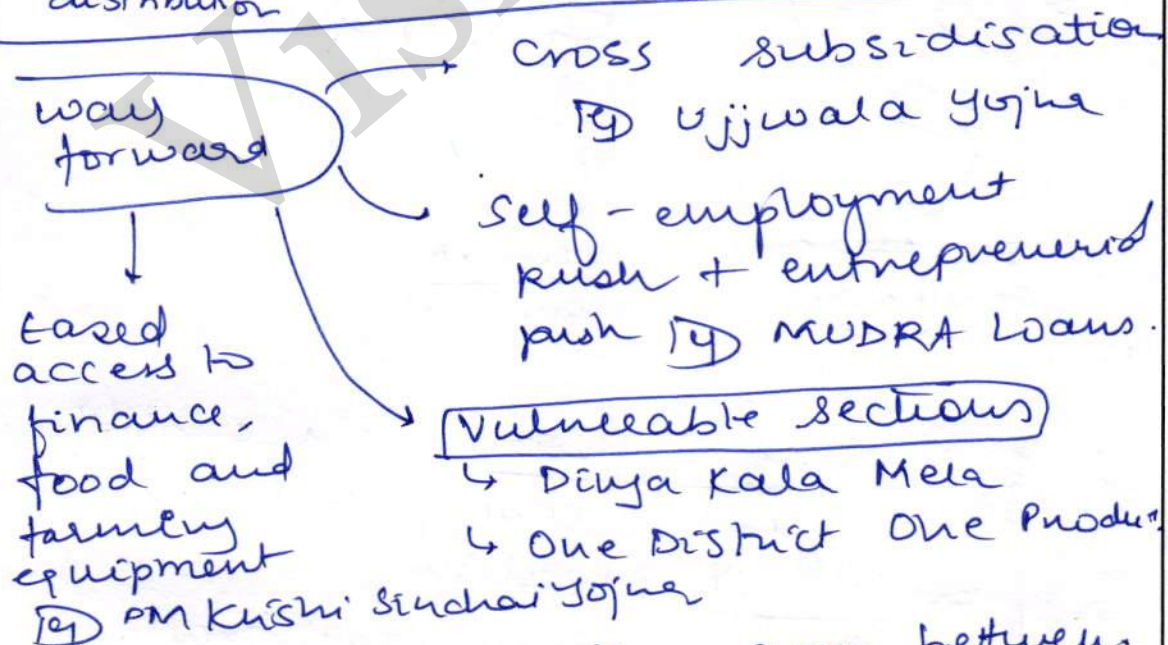 way
forward
cross subsidisation
eg Ujjwala Yojna
self-employment
push + entrepreneurial
push eg MUDRA Loans.
Eased
access to
finance,
food and
farming
equipment
eg PM Krishi Sinchai Yojna
Vulnerable sections
↳ Divya Kala Mela
↳ One District One Produ
between